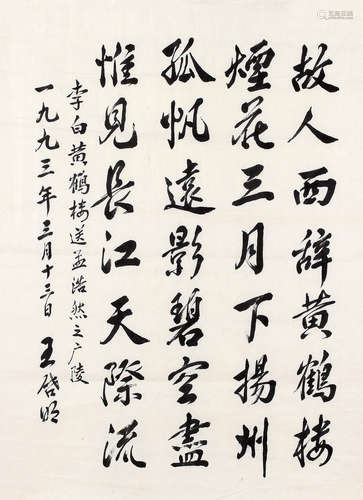 故人西辞黄鹤楼
煙花三月下揚州
孤帆遠影碧空盡
惟見長江天際流
李白黄鹤楼送孟浩然之广陵
一九九三年三月十三日 王啓明